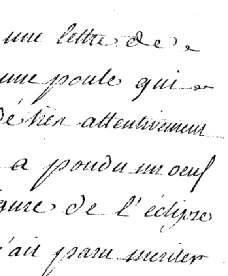 une lettre de
une poule qui
bien attentivement
a pondu un oeuf
de l'éclipse
paru mériter